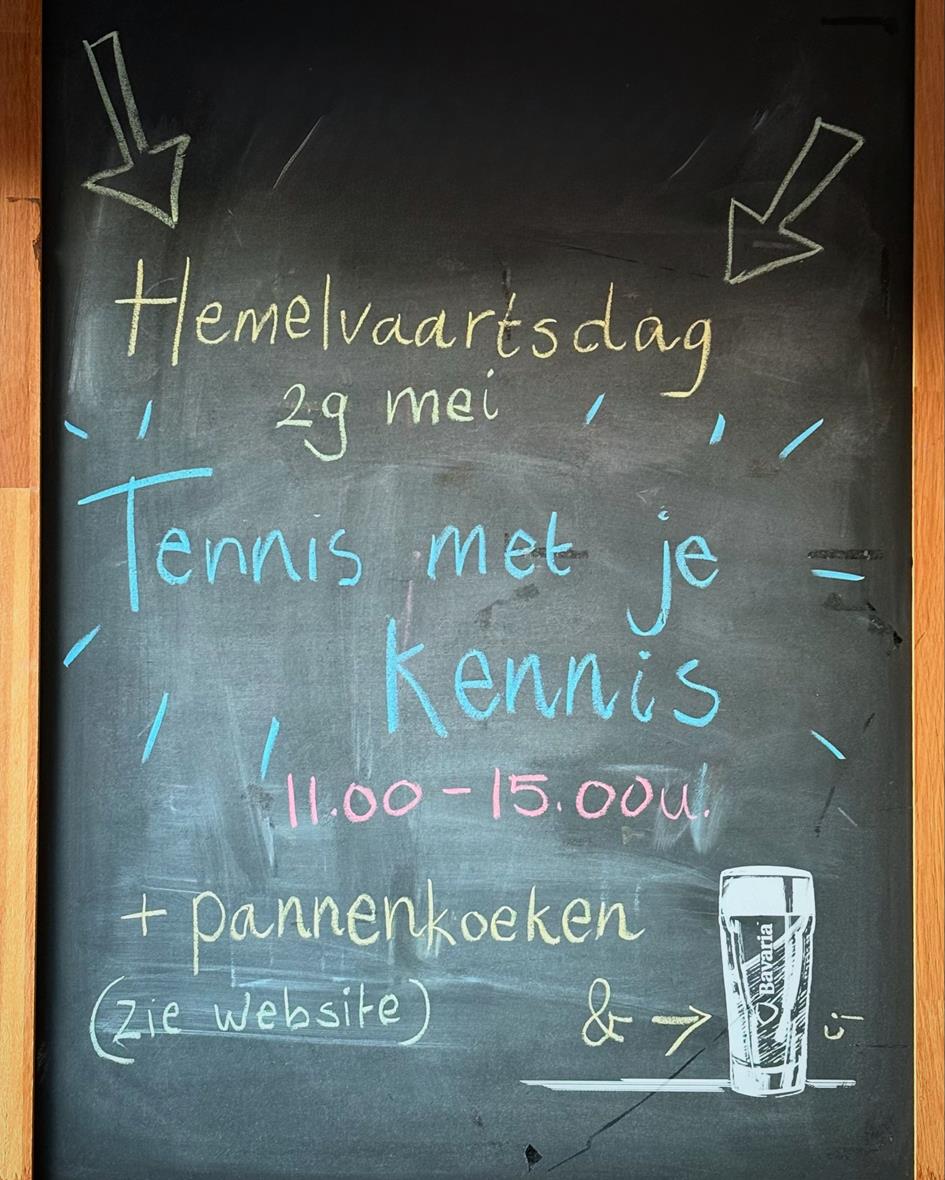 Hemelvaartsdag
29 mei
Tennis met je
kennis
11.00 - 15.00u.
+ pannenkoeken
(zie website)
& →
Bavaria